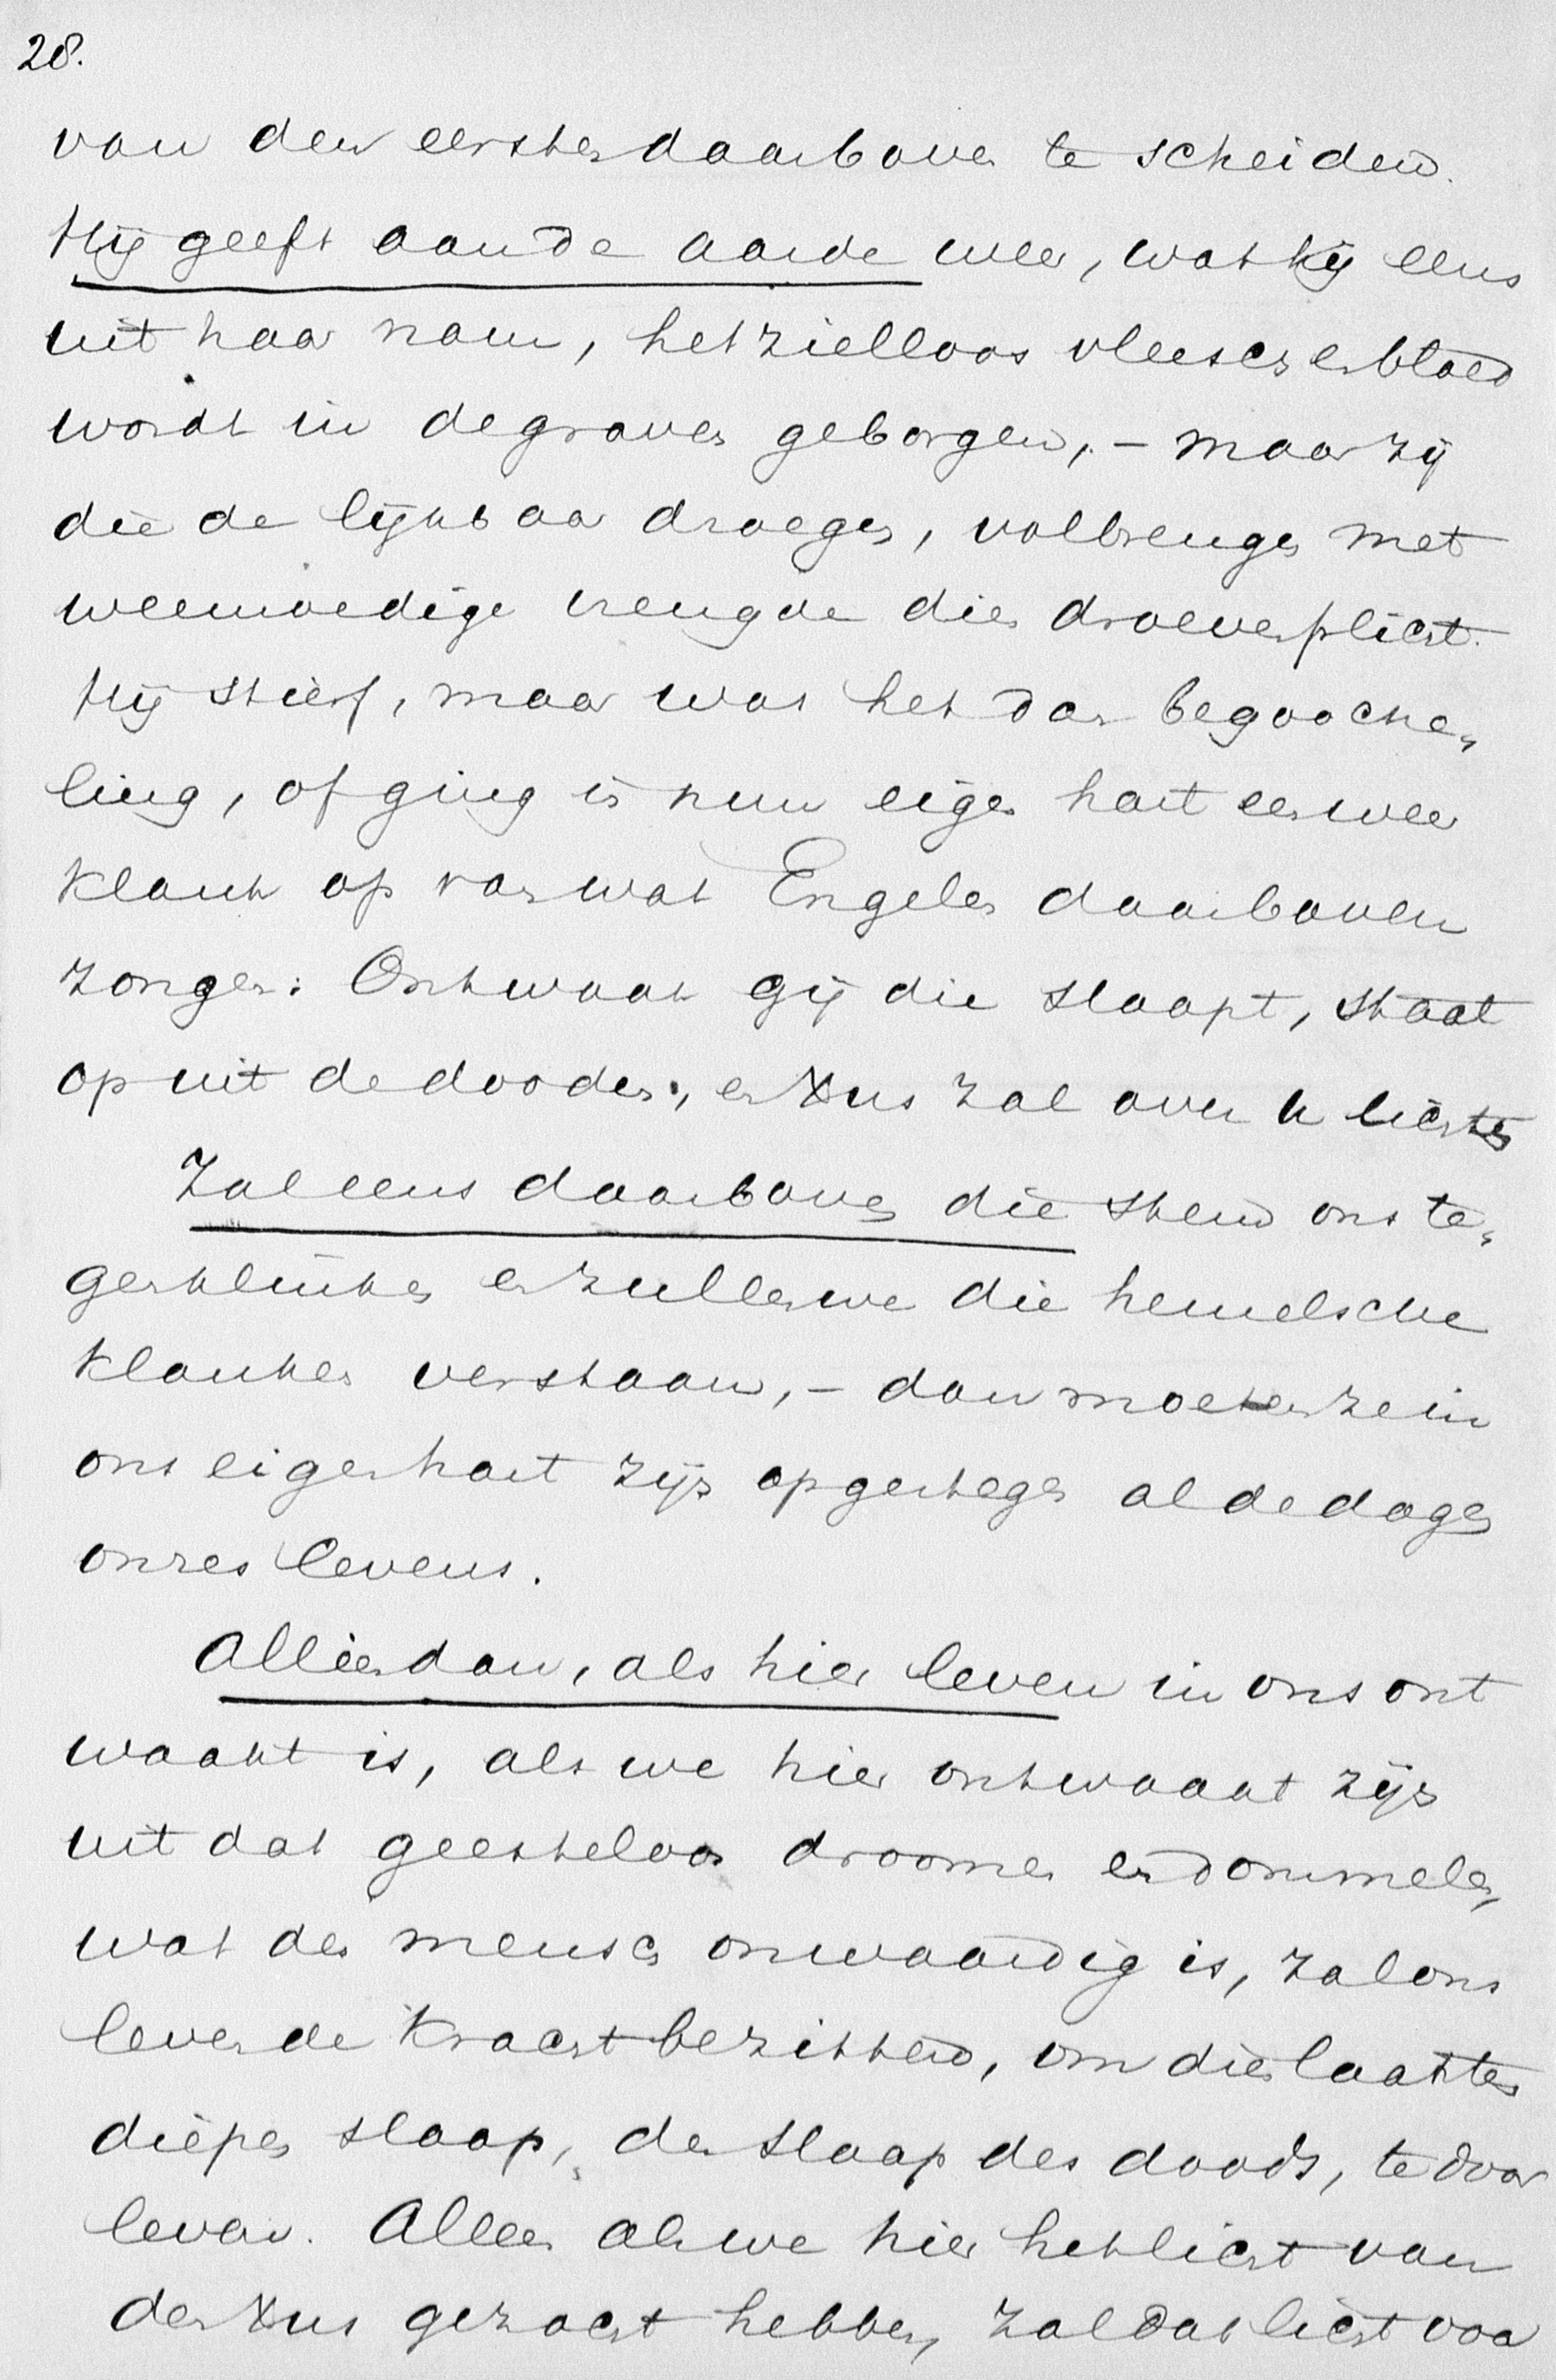 28.
van den eersten daarboven te scheiden.
Hij geeft aan de aarde weer, wat hij eens
uit haar nam, het zielloos vleesch en bloed
wordt in de graven geborgen, - maar zij
die de lijkbaar droegen, volbrengen met
weemoedige vreugde dien droeven plicht.
Hij stierf, maar was het dan begooche„
ling, of ging in hun eigen hart een weer
klank op van wat Engelen daarboven
zongen: Ontwaak gij die slaapt, staat
op uit de dooden, en Xus zal over u lichten
Zal eens daarboven die stem ons te„
genklinken en zullen we die hemelsche
klanken verstaan, - dan moeten ze in
ons eigen hart zijn opgestegen al de dagen
onzes levens.
Alleen dan, als hier leven in ons ont
waakt is, als we hier ontwaakt zijn
uit dat geesteloos droomen en dommelen,
wat des menschen onwaardig is, zal ons
leven de kracht bezitten, om dien laatsten
diepen slaap, den slaap des doods, te door
leven. Alleen als we hier het licht van
den Xus gezocht hebben, zal dat licht voor